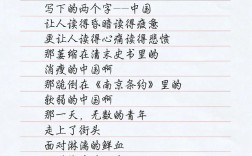 写下的两个字——中国
让人读得昏暗读得疲惫
更让人读得心痛读得悲愤
那萎缩在清末史书里的
消瘦的中国啊
那跪倒在《南京条约》里的
软弱的中国啊
那一天，无数的青年
走上了街头
面对淋漓的鲜血